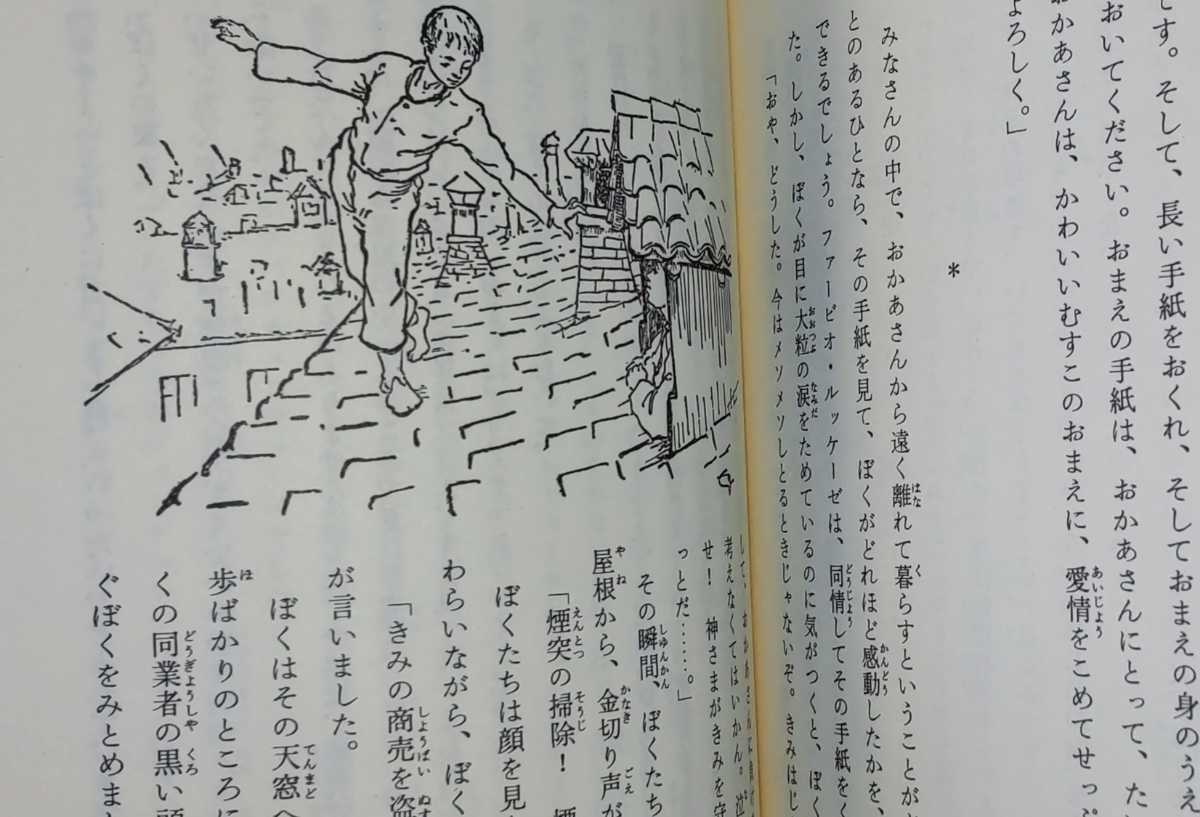 です。そして、長い手紙をおくれ、そしておまえの身のうえ
おいてください。おまえの手紙は、おかあさんにとって、た
おかあさんは、かわいいむすこのおまえに、愛情をこめてせっぷ
よろしく。」
＊
みなさんの中で、おかあさんから遠く離れて暮らすということが
とのあるひとなら、その手紙を見て、ぼくがどれほど感動したかを、
できるでしょう。ファービオ・ルッケーゼは、同情してその手紙をく
た。しかし、ぼくが目に大粒の涙をためているのに気がつくと、ぼく
「おや、どうした。今はメソメソしとるときじゃないぞ。きみはじ
して、おかあさんに
考えなくてはいかん。泣
せ！　神さまがきみを守
っとだ……。」
その瞬間、ぼくたち
屋根から、金切り声が
「煙突の掃除！　煙
ぼくたちは顔を見
わらいながら、ぼく
「きみの商売を盗
が言いました。
ぼくはその天窓へ
歩ばかりのところに
くの同業者の黒い頭
ぐぼくをみとめま